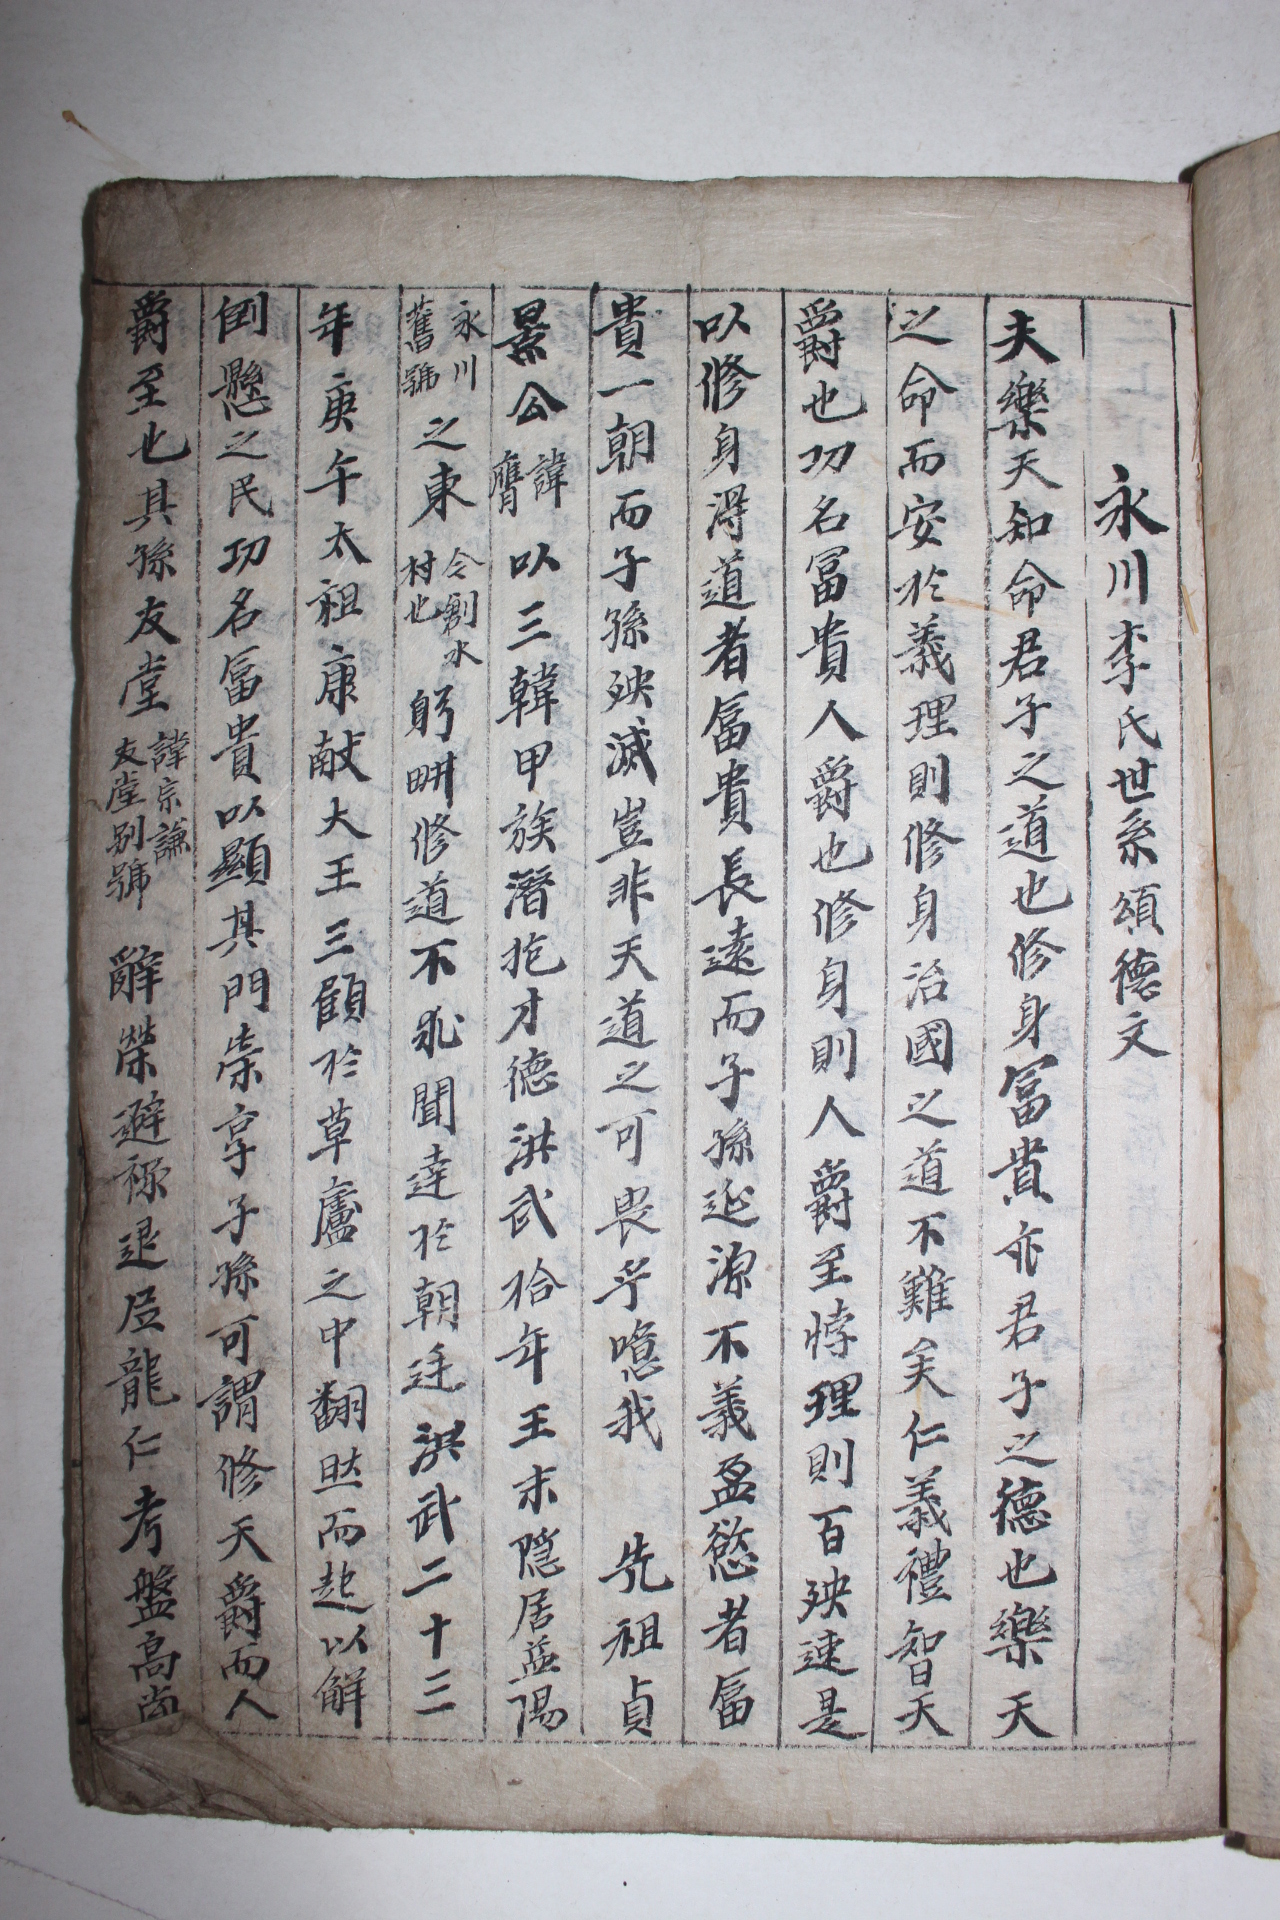 永川李氏世系頌德文
夫樂天知命君子之道也修身富貴亦君子之德也樂天
之命而安於義理則修身治國之道不難矣仁義禮智天
爵也功名富貴人爵也修身則人爵至悖理則百殃速是
以修身得道者富貴長遠而子孫延源不義盈慾者富
貴一朝而子孫殃滅豈非天道之可畏乎噫我 先祖貞
景公諱膺以三韓甲族潛抱才德洪武拾年王末隱居益陽
永川舊號之東今劍水村也躬畊修道不求聞達於朝廷洪武二十三
年庚午太祖康獻大王三顧於草廬之中翻然而起以解
倒懸之民功名富貴以顯其門崇享子孫可謂修天爵而人
爵至也其孫友堂諱宗謙友堂別號辭榮避祿退居龍仁考盤高尚